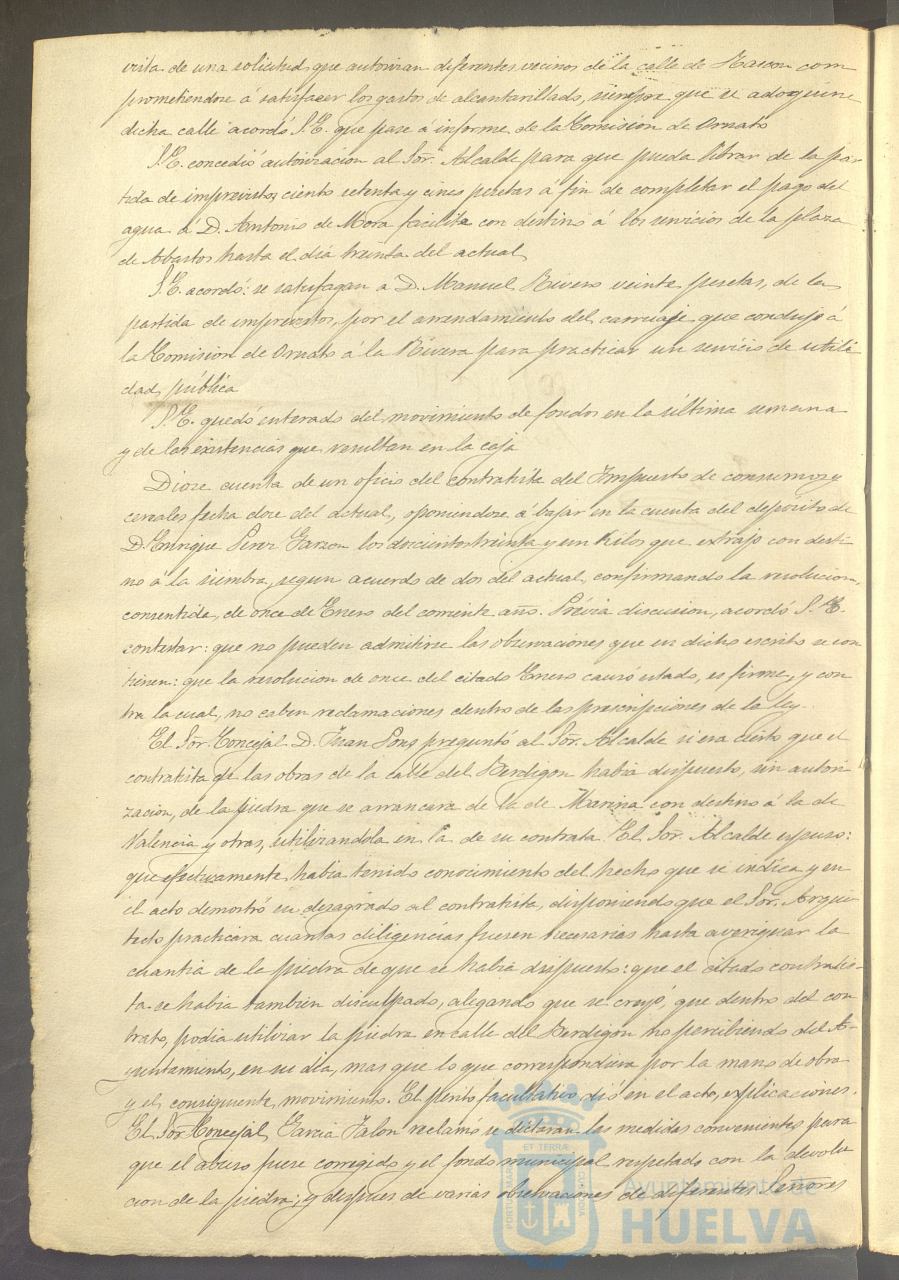 vista de una solicitud que autorizan diferentes vecinos de la calle de Rascon com
prometiendose á satisfacer los gastos de alcantarillado, siempre que se adoquine
dicha calle acordó S.E. que pase á informe de la Comision de Ornato
S.E. concedió autorizacion al Sor. Alcalde para que pueda librar de la par
tida de imprevistos ciento setenta y cinco pesetas á fin de completar el pago del
agua q. D. Antonio de Mora facilita con destino á los servicios de la plaza
de Abastos hasta el dia treinta del actual
S.E. acordó: se satisfagan a D. Manuel Rivero veinte pesetas, de la
partida de imprevistos, por el arrendamiento del carruaje que condujo á
la Comision de Ornato á la Rivera para practicar un servicio de utili
dad pública
S.E. quedó enterado del movimiento de fondos en la última semana
y de las existencias que resultan en la caja
Diose cuenta de un oficio del contratista del Impuesto de consumos y
cereales fecha doce del actual, oponiendose á bajar en la cuenta del deposito de
D. Enrique Perez Garzon los doscientos treinta y un Kilos que extrajo con desti
no á la siembra, segun acuerdo de dos del actual, confirmando la resolucion,
consentida, de once de Enero del corriente año. Prévia discusion, acordó S.E.
contestar: que no pueden admitirse las observaciones que en dicho escrito se con
tienen: que la resolucion de once del citado Enero causó estado, es firme, y con
tra la cual, no caben reclamaciones dentro de las prescripciones de la ley.
El Sor. Concejal D. Juan Pons preguntó al Sor. Alcalde si era cierto que el
contratista de las obras de la calle del Berdigon habia dispuesto, sin autori
zacion, de la piedra que se arrancara de la de Marina con destino á la de
Valencia y otras, utilizandola en la de su contrata. El Sor. Alcalde expuso:
que efectivamente habia tenido conocimiento del hecho que se indica y en
el acto demostró su desagrado al contratista, disponiendo que el Sor. Arqui
tecto practicara cuantas diligencias fuesen necesarias hasta averiguar la
cuantia de la piedra de que se habia dispuesto: que el citado contratis-
ta se habia tambien disculpado, alegando que se creyó, que dentro del con
trato, podia utilizar la piedra en calle del Berdigon no percibiendo del A-
yuntamiento, en su dia, mas que lo que correspondiera por la mano de obra
y el consiguiente movimiento. El périto facultativo dió en el acto, explicaciones.
El Sor. Concejal Garcia Jalon reclamó se dictaran las medidas convenientes para
que el abuso fuese corregido y el fondo municipal respetado con la devolu
cion de la piedra; y despues de varias observaciones de diferentes Señores
PORTUS MARIS ET TERRAE CUSTODIA
Ayuntamiento de
HUELVA